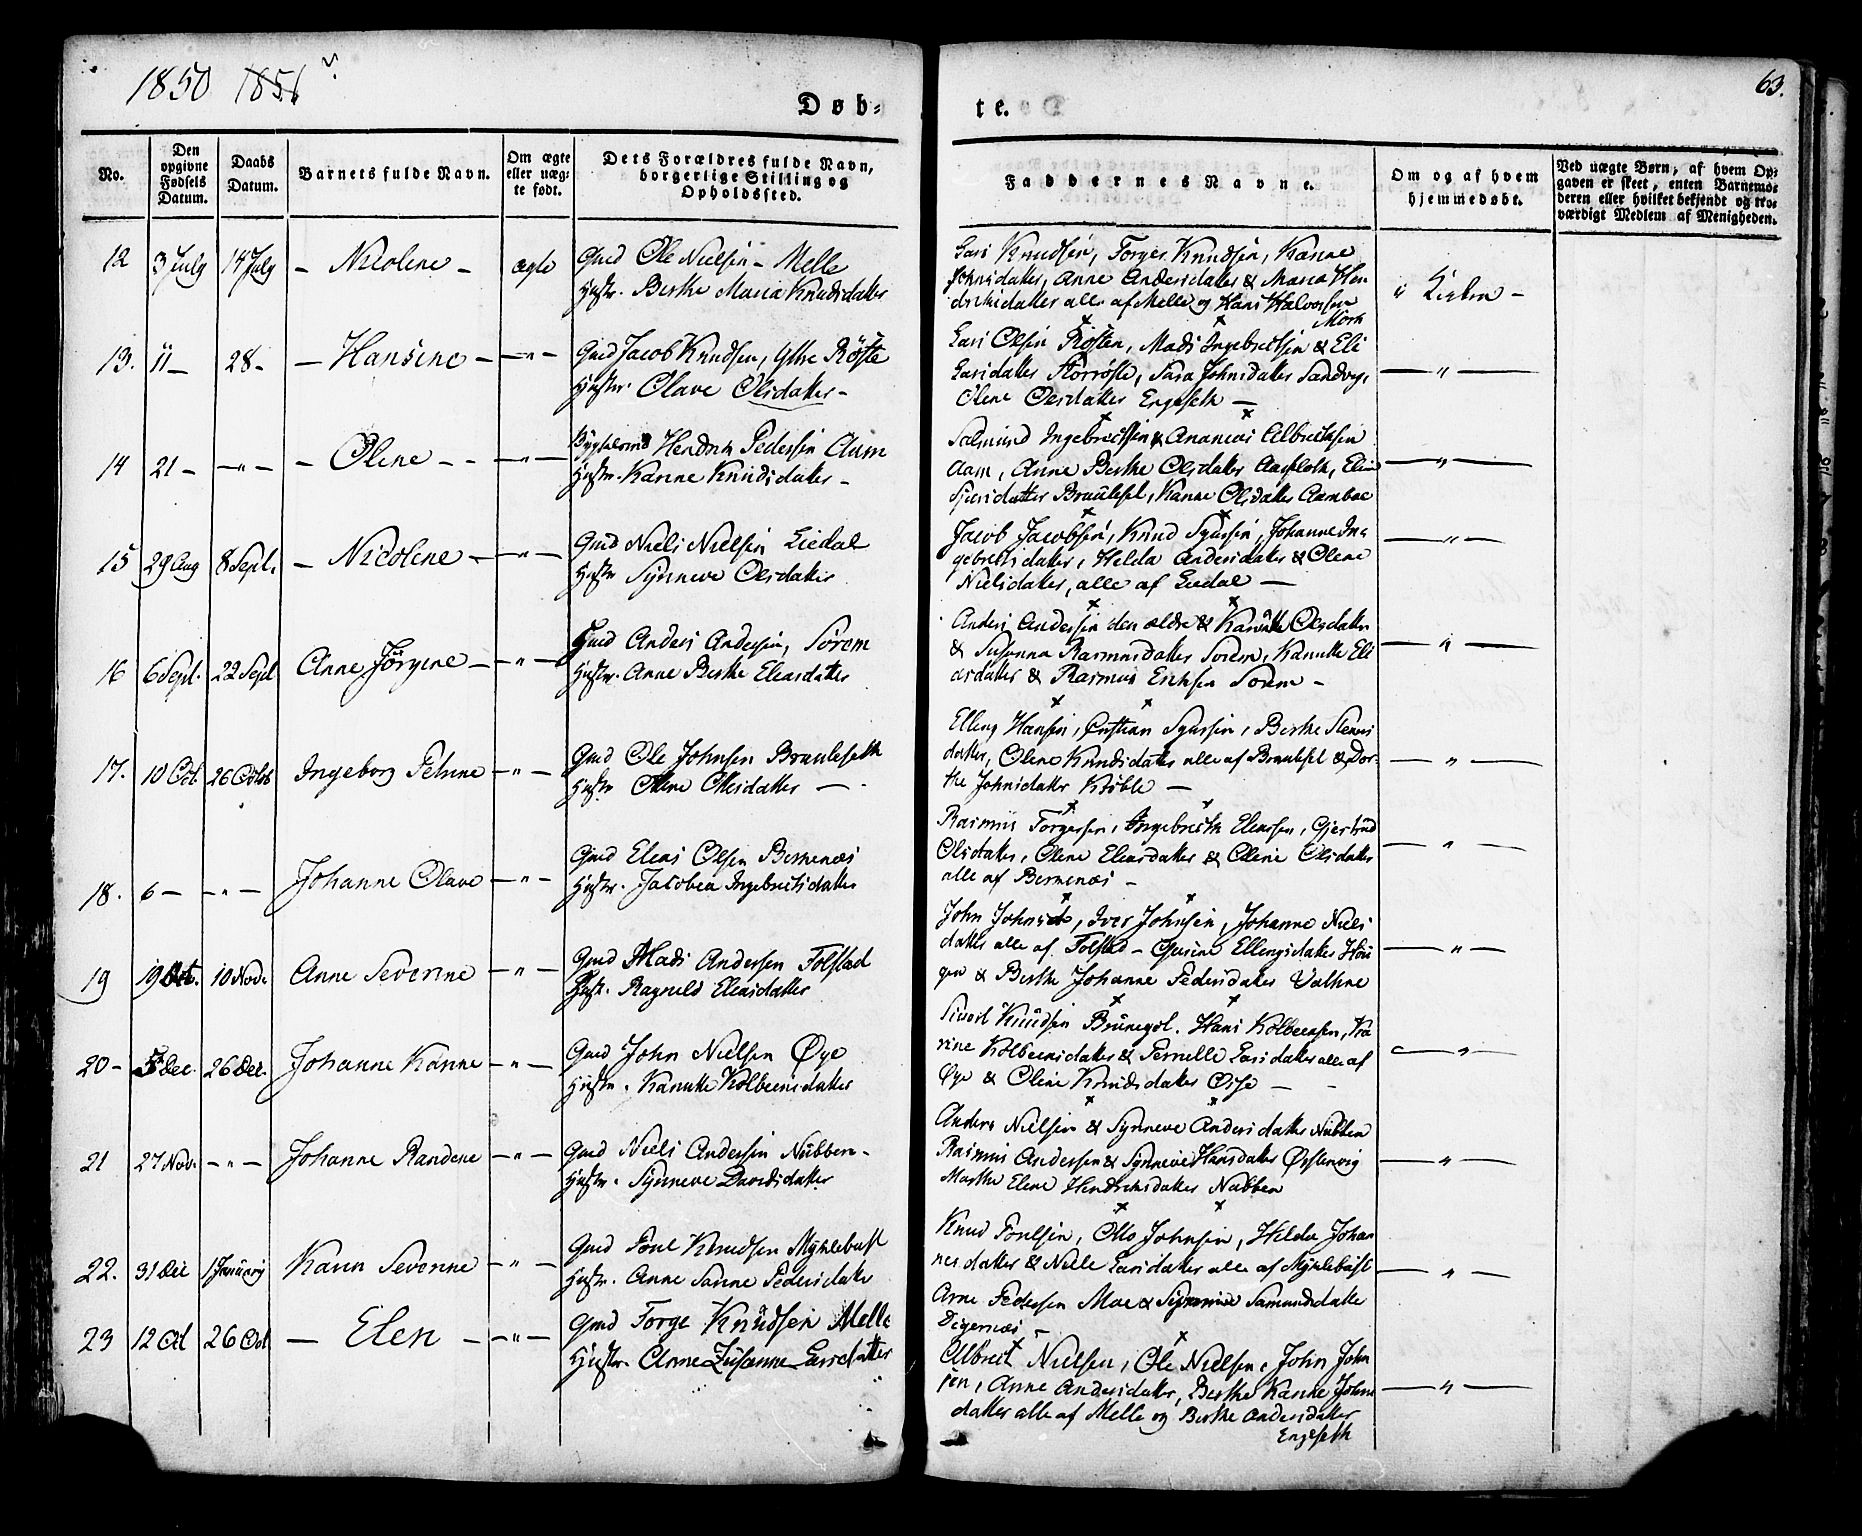 1850 1851
Døb-
te.
63.
No.
Den opgivne Fødsels Datum.
Daabs Datum.
Barnets fulde Navn.
Om ægte eller uæg-te født.
Dets Forældres fulde Navn, borgerlige Stilling og Opholdssted.
Faddernes Navne.
Om og af hvem hjemmedøbt.
Ved uægte Børn, af hvem Op-gaven er skeet, enten Barnemo-deren eller hvilket bekjendt og tro-værdigt Medlem af Menigheden.
12 3 July 14 July – Nicolene – ægte
Gmd Ole Nielsen – Melle
Hustr. Berthe Maria Knudsdatter
Lars Knudsen, Torger Knudsen, Karine
Johnsdatter, Anne Andersdatter & Maria Hen
driksdatter alle af Melle og Hans Halvorsen
Mork
i Kirken –
13. 11 – 28 – – Hansine – – „ –
Gmd Jacob Knudsen, Ythre Röste
Hustr. Olave Olsdatter –
Lars Olsen Rösten, Mads Ingebretsen & Eli
Larsdatter Storröste, Sara Johnsdatter Sandvig,
Olene Olsdatter Engeseth –
– „ –
14 21 – – „ – – Olene – – – „ –
Bygselmd Hendrik Pedersen Aam
Hustr. Karine Knudsdatter –
Salmund Ingebretsen & Ananias Albretsen
Aam, Anne Berthe Olsdatter Aasfloth, Eline
Sjursdatter Brauteset, Karine Olsdatter Aambae
– „ –
15 29 Aug 8 Sept. – Nicolene – – „ –
Gmd Niels Nielsen Liedal
Hustr Synneve Olsdatter
Jacob Jacobsen, Knud Sjursen, Johanne In-
gebretsdatter, Helda Andersdatter & Olene
Nielsdatter, alle af Liedal –
– „ –
16 6 Sept. 22 Sept Anne Jörgine – – „ –
Gmd Anders Andersen, Sörem
Hustr. Anne Berthe Eliasdatter
Anders Andersen den ældre & Kanutte Olsdatter
& Susanna Rasmusdatter Sörem, Kanutte Eli
asdatter & Rasmus Erichsen Sörem –
– „ –
17. 10 Oct. 26 Octob Ingeborg Petrine – „ –
Gmd Ole Johnsen Brauteseth
Hustr Olene Olsdatter –
Elling Hansen, Cristian Sjursen, Berthe Steens
datter, Olene Knudsdatter alle af Brauteset & Dor-
the Johnsdatter Kröble –
– „ –
18. 6 – – „ – Johanne Olave – „ –
Gmd Elias Olsen Bernenæs
Hustr. Jacobea Ingebretsdatter
Rasmus Torgersen, Ingebreth Eliassen, Gjertrud
Olsdatter, Olene Eliasdatter & Olene Olsdatter
alle af Bernenæs –
– „ –
19 19 Oct. 10 Nov. Anne Severine – „ –
Gmd Mads Andersen Folstad
Hustr. Ragnild Eliasdatter
John Johnsen, Iver Johnsen, Johanne Niels
datter alle af Folstad – Gurine Ellingsdatter Hou
gen & Berthe Johanne Pedersdatter Vathne
– „ –
20 – 5 Dec. 26 Dec. Johanne Karine – „ –
Gmd John Nielsen Øye
Hustr. Kanutte Kolbeensdatter
Sivert Knudsen Brunegot. Hans Kolbeensen, Ka
rine Kolbeensdatter & Pernille Larsdatter alle af
Øye & Olene Knudsdatter Orse –
– „ –
21 27 Nov. – „ – Johanne Randine – „ –
Gmd Niels Andersen Nubben –
Hustr. Synneve Davidsdatter
Anders Nielsen & Synneve Andersdatter Nubben
Rasmus Andersen & Synneve Hansdatter Ørstenvig
Marthe Elene Hendriksdatter Nubben
– „ –
22. 31 Dec 1 January Karen Severine – „ –
Gmd Poul Knudsen Myklebust
Hustr. Anne Sanne Pedersdatter
Knud Poulsen, Otto Johnsen, Hilda Johan
nesdatter & Nille Larsdatter alle af Myklebust
Arne Pedersen Moe & Synneve Samundsdatter
Digernæs –
– „ –
23 12 Oct 26 Oct – Elen – – „ –
Gmd Torge Knudsen Melle
Hustr. Anne Susanne Larsdatter
Albret Nielsen, Ole Nielsen, John John
sen, Anne Andersdatter, Berthe Karine Johns
datter alle af Melle og Berthe Andersdatter
Engeseth
– „ –